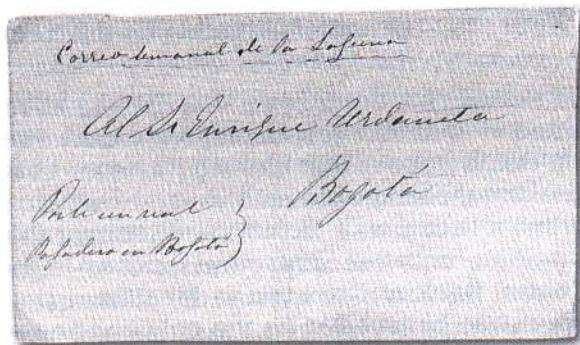 Correo semanal de la Laguna
Al Sr Enrique Urdaneta
Bogotá
Porte un real
Pagadero en Bogotá